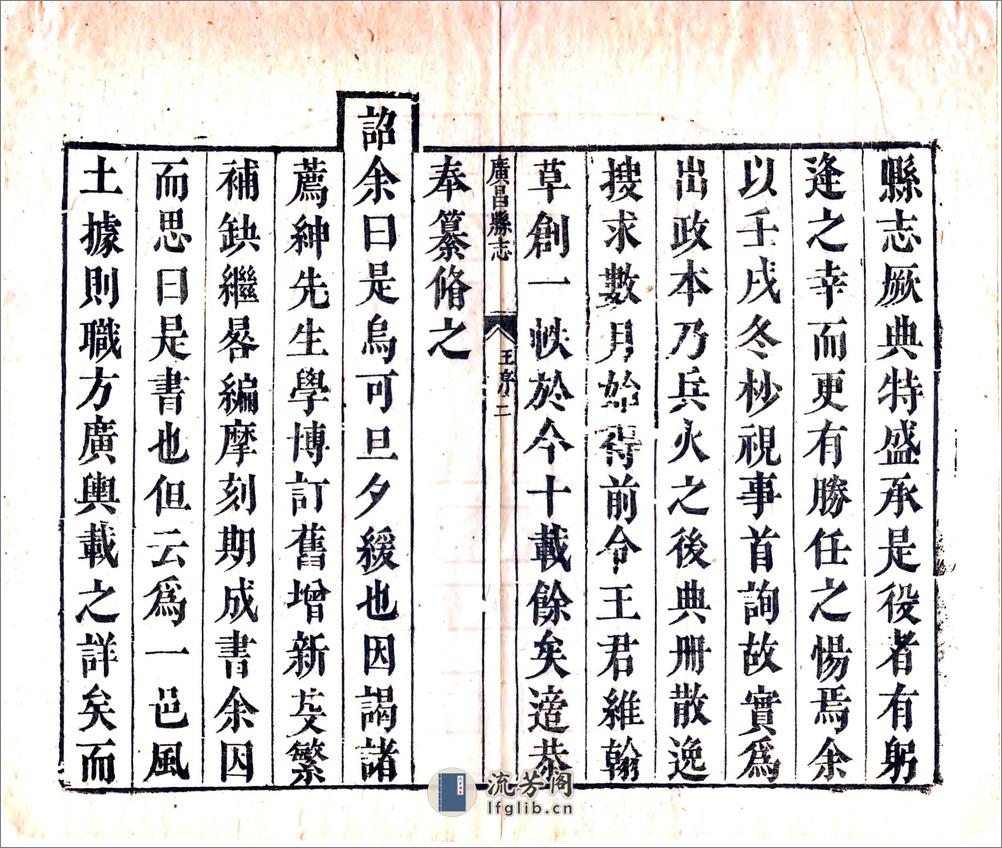 縣志厥典特盛承是役者有躬
逢之幸而更有勝任之惕焉余
以壬戌冬杪視事首詢故實爲
出政本乃兵火之後典冊散逸
搜求數月始得前令王君維翰
草創一帙於今十載餘矣適恭
奉纂脩之
廣昌縣志
王序
二
詔余曰是烏可旦夕緩也因謁諸
薦紳先生學博訂舊增新芟繁
補缺繼晷編摩刻期成書余因
而思曰是書也但云爲一邑風
土據則職方廣輿載之詳矣而
流芳阁
lfglib.cn